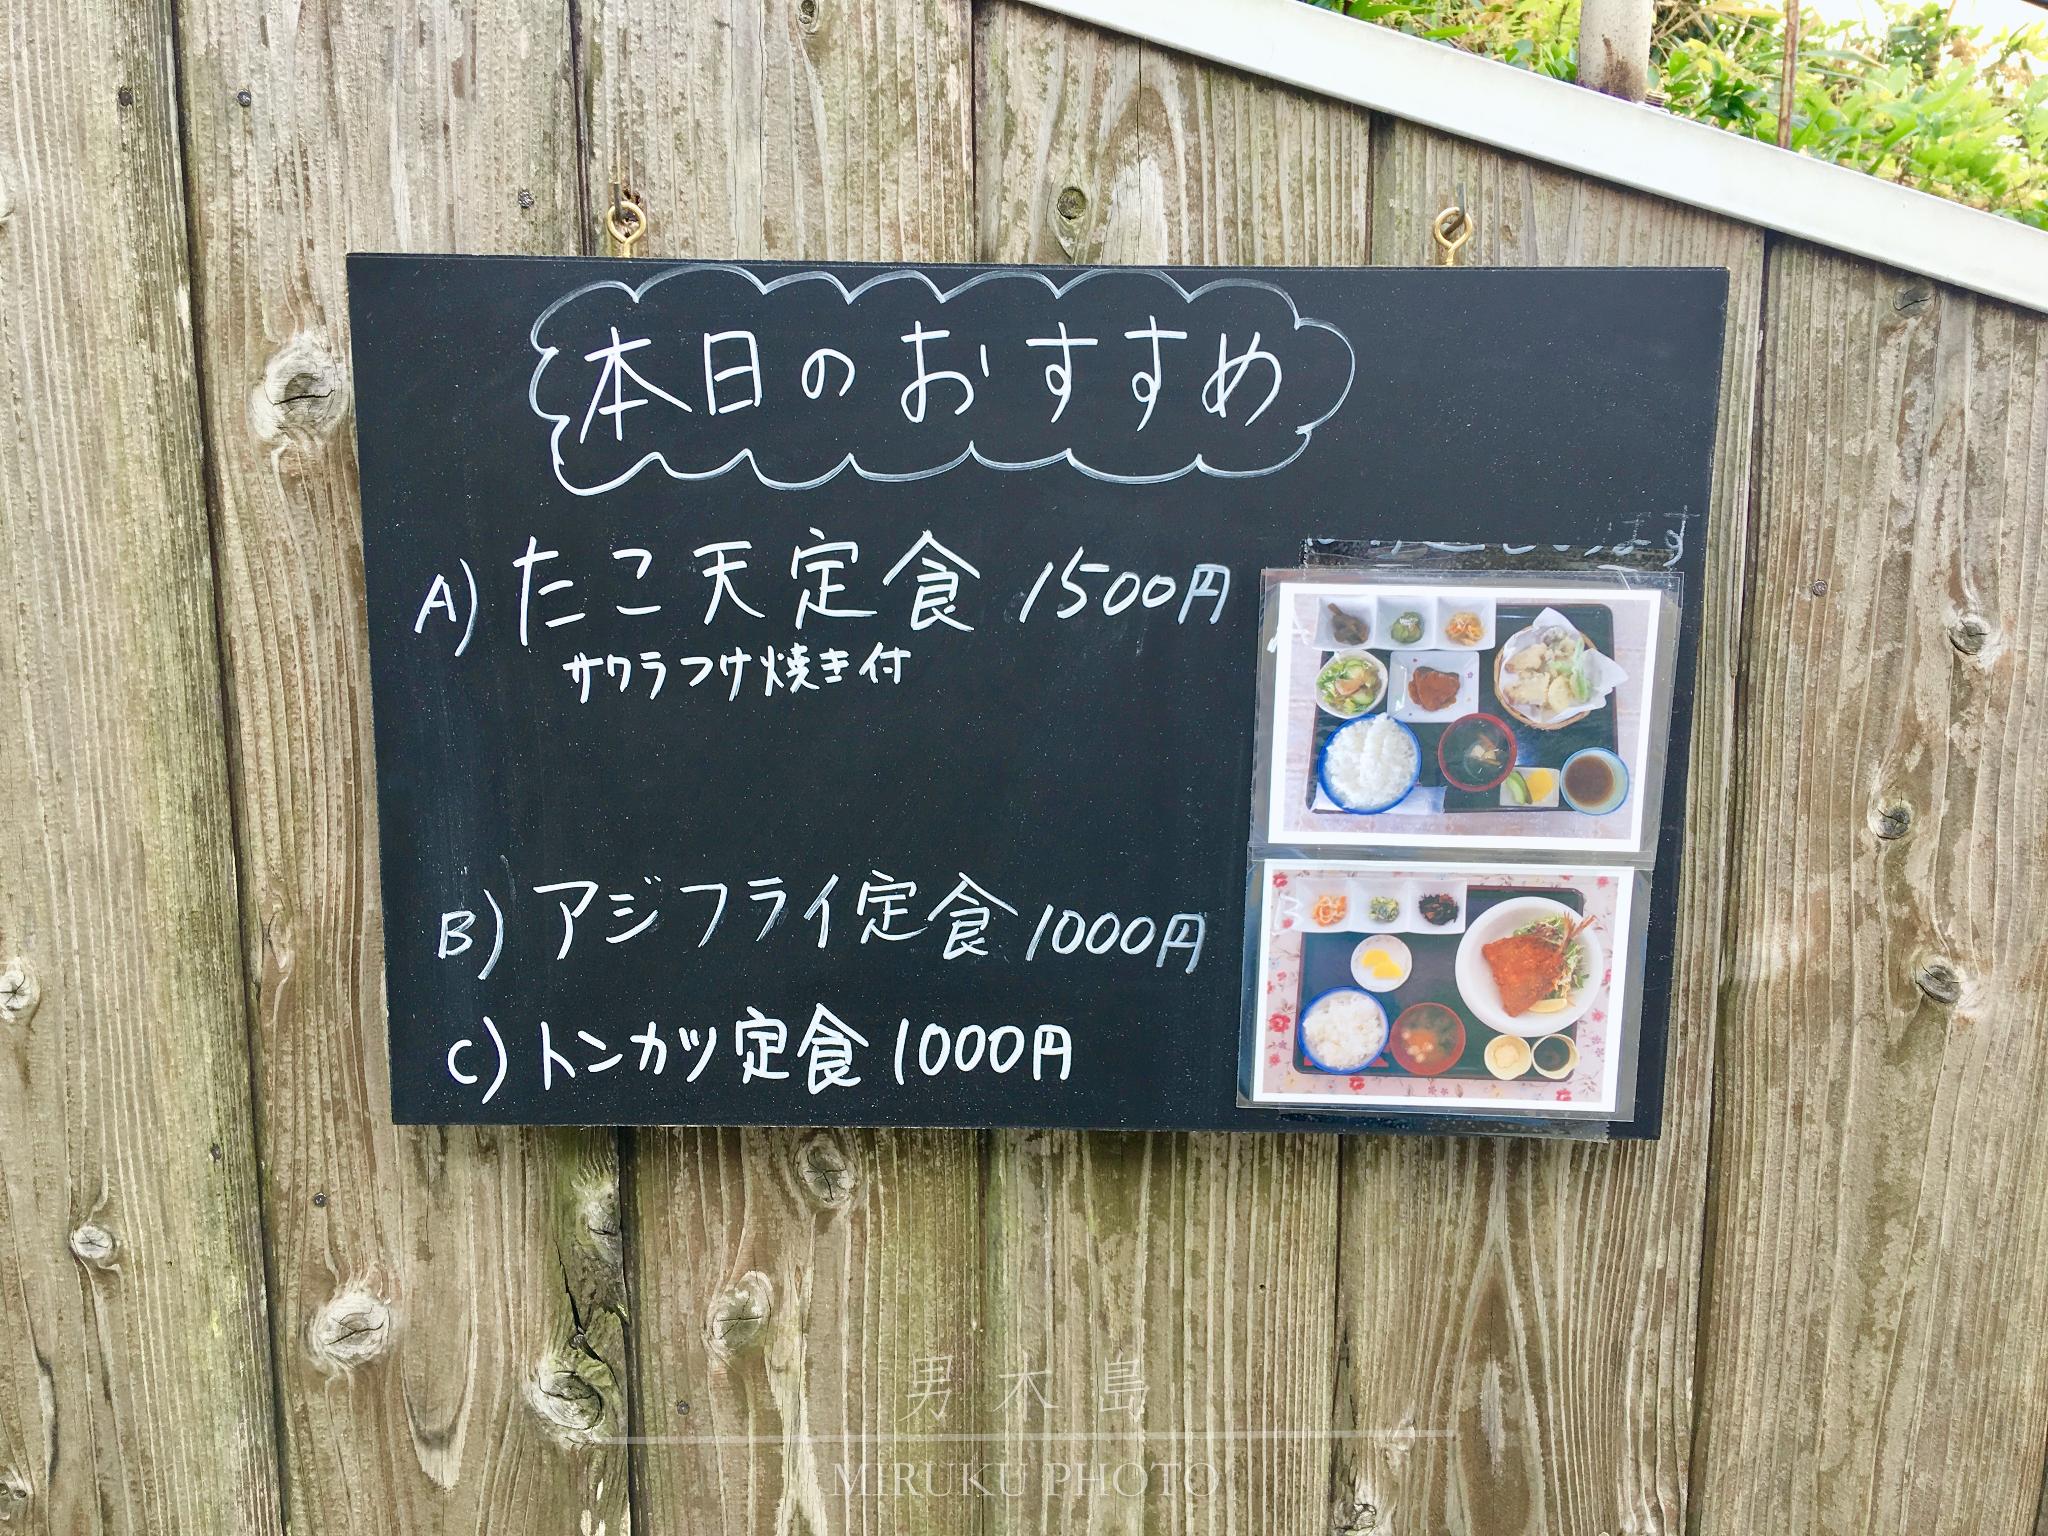 本日のおすすめ
A) たこ天定食 1500円
サワラつけ焼き付
B) アジフライ定食 1000円
C) トンカツ定食 1000円
男木島
MIRUKU PHOTO